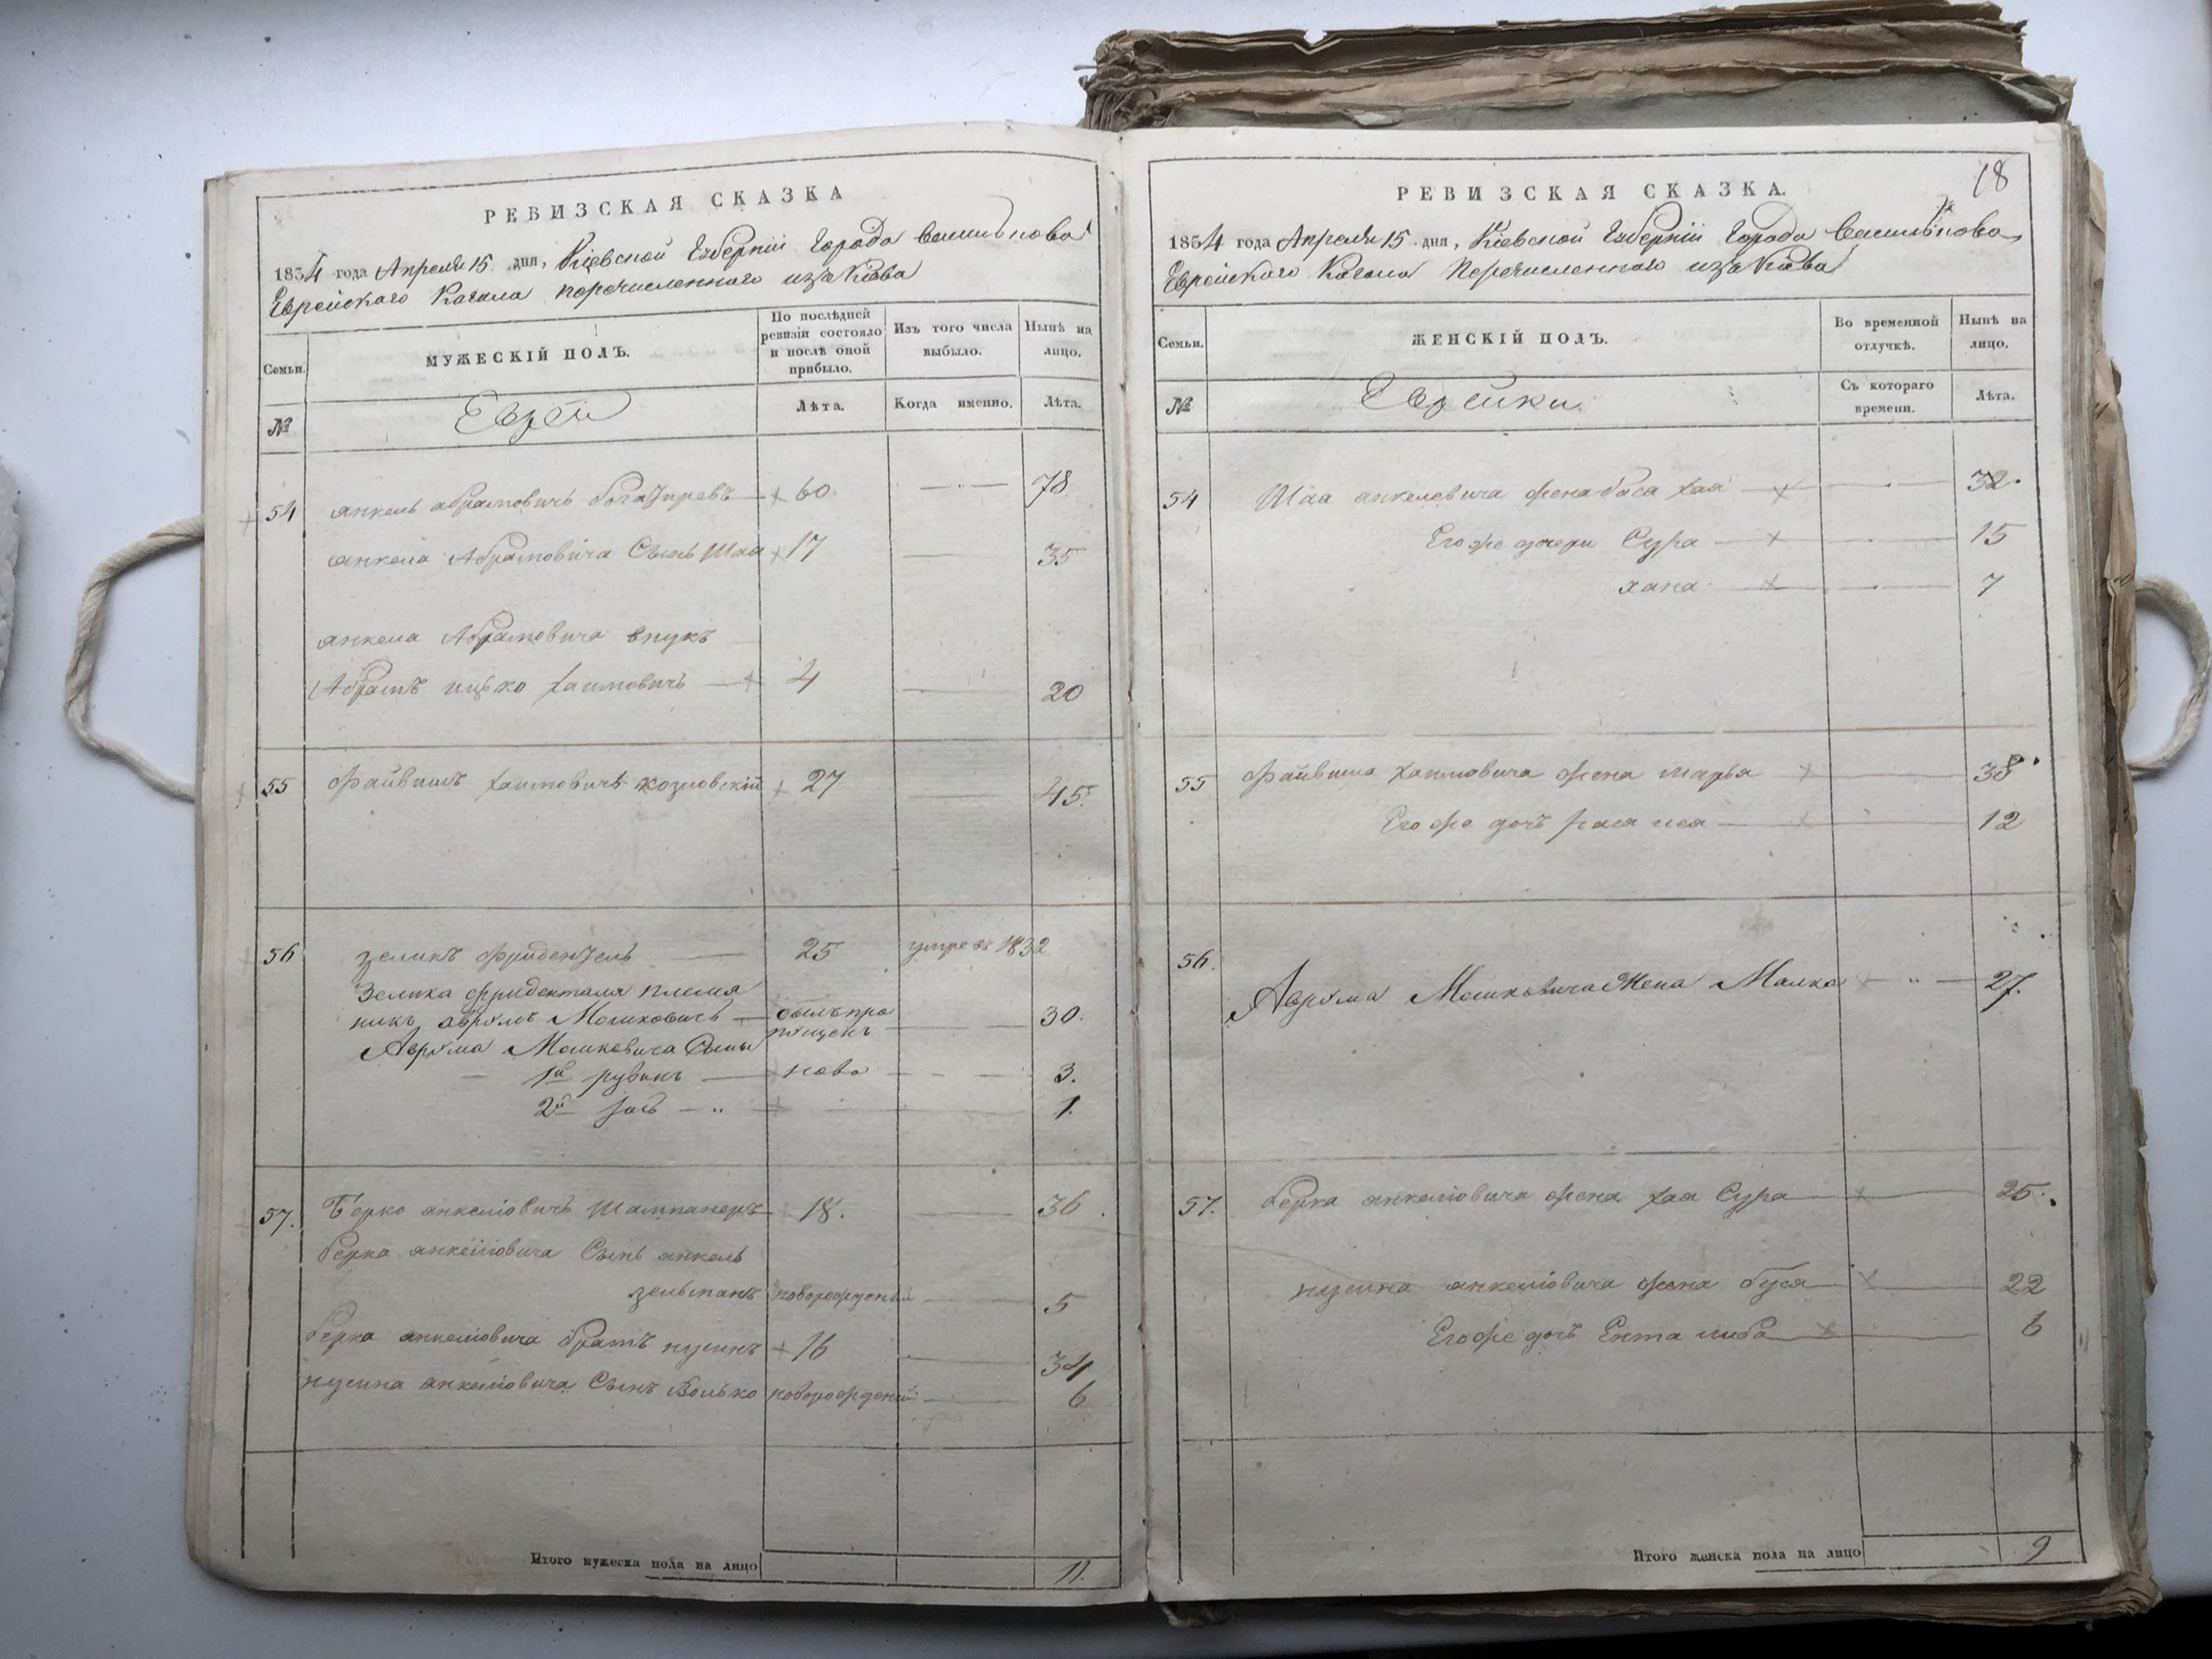 РЕВИЗСКАЯ СКАЗКА
1854 года Апреля 15 дня, Кіевской Губерніи Города Василькова
Еврейскаго Кагала перечисленнаго изъ Кіева
Семьи.
МУЖЕСКІЙ ПОЛЪ.
По послѣдней ревизіи состояло и послѣ оной прибыло.
Изъ того числа выбыло.
Нынѣ на лицо.
№
Евреи
Лѣта.
Когда именно.
Лѣта.
54 анкель абрамовичъ богатыревъ 60 78
анкела Абрамовича Сынъ Шая 17 35
анкела Абрамовича внукъ
Абрамъ ицько хаимовичъ 4 20
55 Файвишъ хаимовичъ козловскій 27 45
56 зеликъ фриденталь 25 умре въ 1832
Зелика фриденталя племя
никъ аврумъ Мошковичъ былъ про
пущенъ 30.
Аврума Мошковича Сыны
1й рувинъ ново 3.
2й 1
57. Берко анкеліовичъ Шампанеръ 18. 36
берка анкеліовича Сынъ анкель
зельманъ новорожденый 5
берка анкеліовича братъ нусинъ 16 34
нусина анкеліовича Сынъ Волько новорожденый 6
Итого мужеска пола на лицо 11.
18
РЕВИЗСКАЯ СКАЗКА.
1854 года Апреля 15 дня, Кіевской Губерніи Города Василькова
Еврейскаго Кагала Перечисленнаго изъ Кіева
Семьи.
ЖЕНСКІЙ ПОЛЪ.
Во временной отлучкѣ.
Нынѣ на лицо.
№
Еврейки
Съ котораго времени.
Лѣта.
54 Шаи анкелевича жена бася хая 32.
Его же дочери Сура 15
хана 7
55 Файвиша хаимовича жена марья 38
Его же дочь 12
56. Аврума Мошковича Жена Малка 27.
57. берка анкеліовича жена хая Сура 25.
нусина анкеліовича жена буся 22
Его же дочь Ента либа 6
Итого женска пола на лицо 9